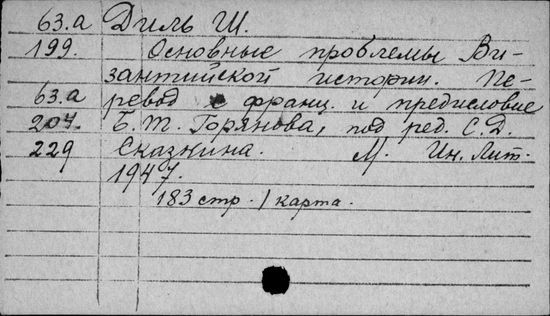 63.а Диль Ш.
199. Основные проблемы Ви-
зантийской истории. Пе-
63.а ревод с франц. и предисловие
207. Б. Т. Горянова, под ред. С.Д.
229 Сказкина. М. Ин. Лит.
1947.
183 стр. 1 карта.